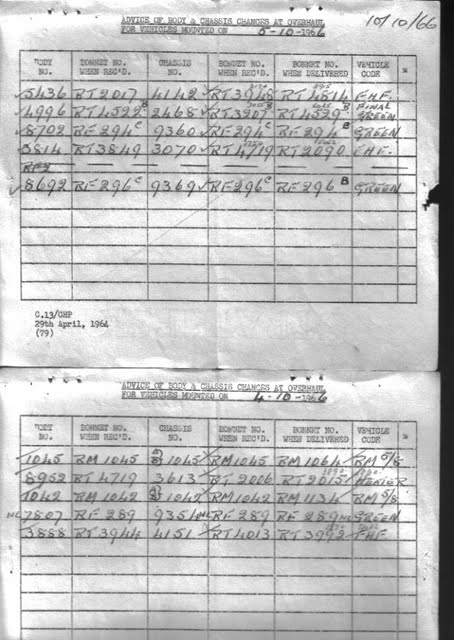 10/10/66
ADVICE OF BODY & CHASSIS CHANGES AT OVERHAUL
FOR VEHICLES MOUNTED ON 5-10-1966
BODY NO. BONNET NO. WHEN REC'D. CHASSIS NO. BONNET NO. WHEN REC'D. BONNET NO. WHEN DELIVERED VEHICLE CODE *
5436 RT2017 4142 RT3948 RT4814 FHF.
4996 RT4522 B 2468 RT3207 RT4529 B FINAL GREEN
8702 RF294 C 9360 RF294 C RF294 B GREEN
3814 RT3849 3070 RT4719 RT2090 FHF.
RF2
8692 RF296 C 9369 RF296 C RF296 B GREEN
C.13/CHP
29th April, 1964
(79)
ADVICE OF BODY & CHASSIS CHANGES AT OVERHAUL
FOR VEHICLES MOUNTED ON 4-10-1966
BODY NO. BONNET NO. WHEN REC'D. CHASSIS NO. BONNET NO. WHEN REC'D. BONNET NO. WHEN DELIVERED VEHICLE CODE *
1045 RM1045 1045 RM1045 RM1064 RM 5/8
8952 RT4719 3613 RT2006 RT2015 HEATER
1042 RM1042 1042 RM1042 RM1134 RM 5/8
NL 7807 RF289 9351 NL RF289 RF289 NL GREEN
3888 RT3944 4151 RT4013 RT3992 FHF